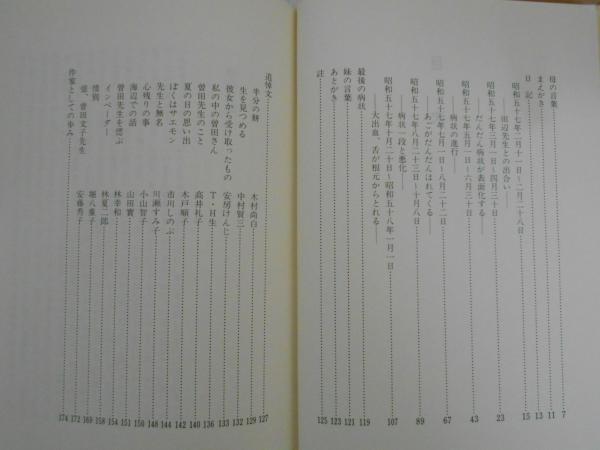 母の言葉 7
まえがき 11
日記 13
昭和五十七年二月十一日〜二月二十八日 15
――田辺先生との出合い――
昭和五十七年三月一日〜四月三十日 23
――だんだん病状が表面化する――
昭和五十七年五月一日〜六月三十日 43
――病状の進行――
昭和五十七年七月一日〜八月二十二日 67
――あごがだんだんはれてくる――
昭和五十七年八月二十三日〜十月八日 89
――病状一段と悪化――
昭和五十七年十月二十日〜昭和五十八年一月一日 107
――大出血、舌が根元からとれる――
最後の病状 119
妹の言葉 121
あとがき 123
註 125
追悼文 127
半分の餅 木村尚白 129
生を見つめる 中村賢三 132
彼女から受け取ったもの 安房けんじ 133
私の中の曽田さん T・H生 136
曽田先生のこと 高井礼子 140
夏の日の思い出 木戸順子 142
ぼくはサエモン 市川しのぶ 144
先生と無名 川瀬すみ子 148
心残りの事 小山智子 150
海辺での話 山田實 151
曽田先生を偲ぶ 林幸和 154
インベーダー 林夏二郎 158
惜別 堀八重子 169
曽田文子先生 安藤秀子 172
作家としての歩み 174